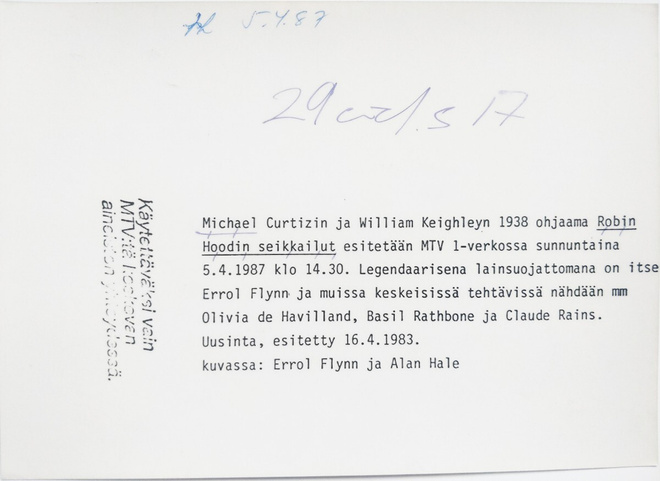 5.4.87
Michael Curtizin ja William Keighleyn 1938 ohjaama Robin
Hoodin seikkailut esitetään MTV 1-verkossa sunnuntaina
5.4.1987 klo 14.30. Legendaarisena lainsuojattomana on itse
Errol Flynn ja muissa keskeisissä tehtävissä nähdään mm
Olivia de Havilland, Basil Rathbone ja Claude Rains.
Uusinta, esitetty 16.4.1983.
kuvassa: Errol Flynn ja Alan Hale
Käytettäväksi vain
MTV:tä koskevan
aineiston yhteydessä.